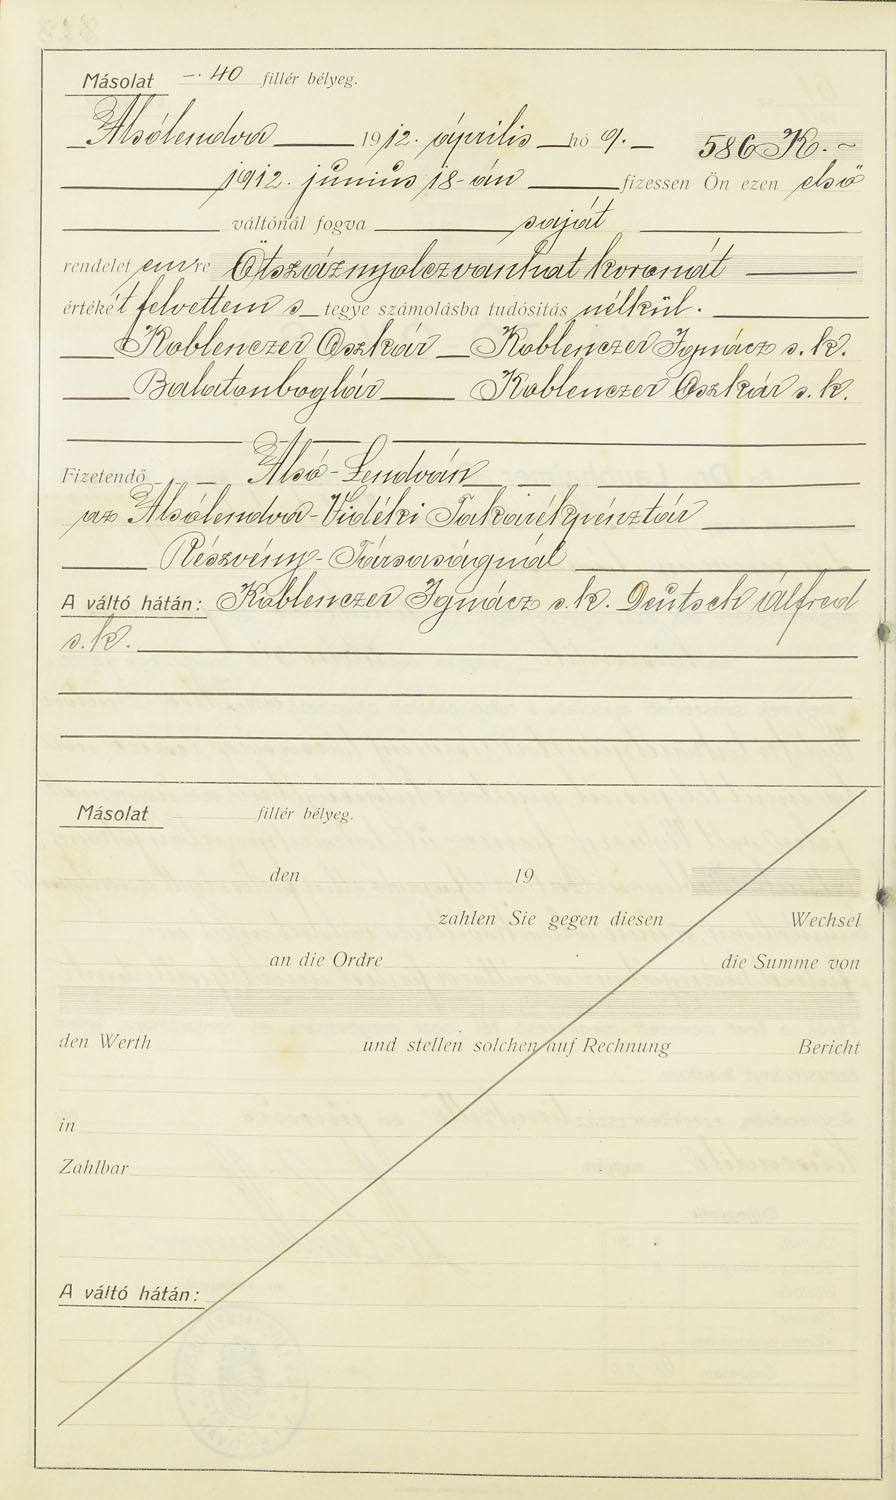 Másolat —· 40 fillér bélyeg.
Alsólendva 1912. április hó 9. 586 K.—
1912. junius 18-án fizessen Ön ezen első
váltónál fogva saját
rendelet emre Ötszáznyolczvanhat koronát
értékét felvettem s tegye számolásba tudósitás nélkül.
Koblenczer Oszkár Koblenczer Ignácz s. k.
Balatonboglár Koblenczer Oszkár s. k.
Fizetendő Alsó-Lendván
az Alsólendva-Vidéki Takarékpénztár
Részvény-Társaságnál
A váltó hátán: Koblenczer Ignácz s. k. Deutsch Alfred
s. k.
Másolat fillér bélyeg.
den 19
zahlen Sie gegen diesen Wechsel
an die Ordre die Summe von
den Werth und stellen solchen auf Rechnung Bericht
in
Zahlbar
A váltó hátán: